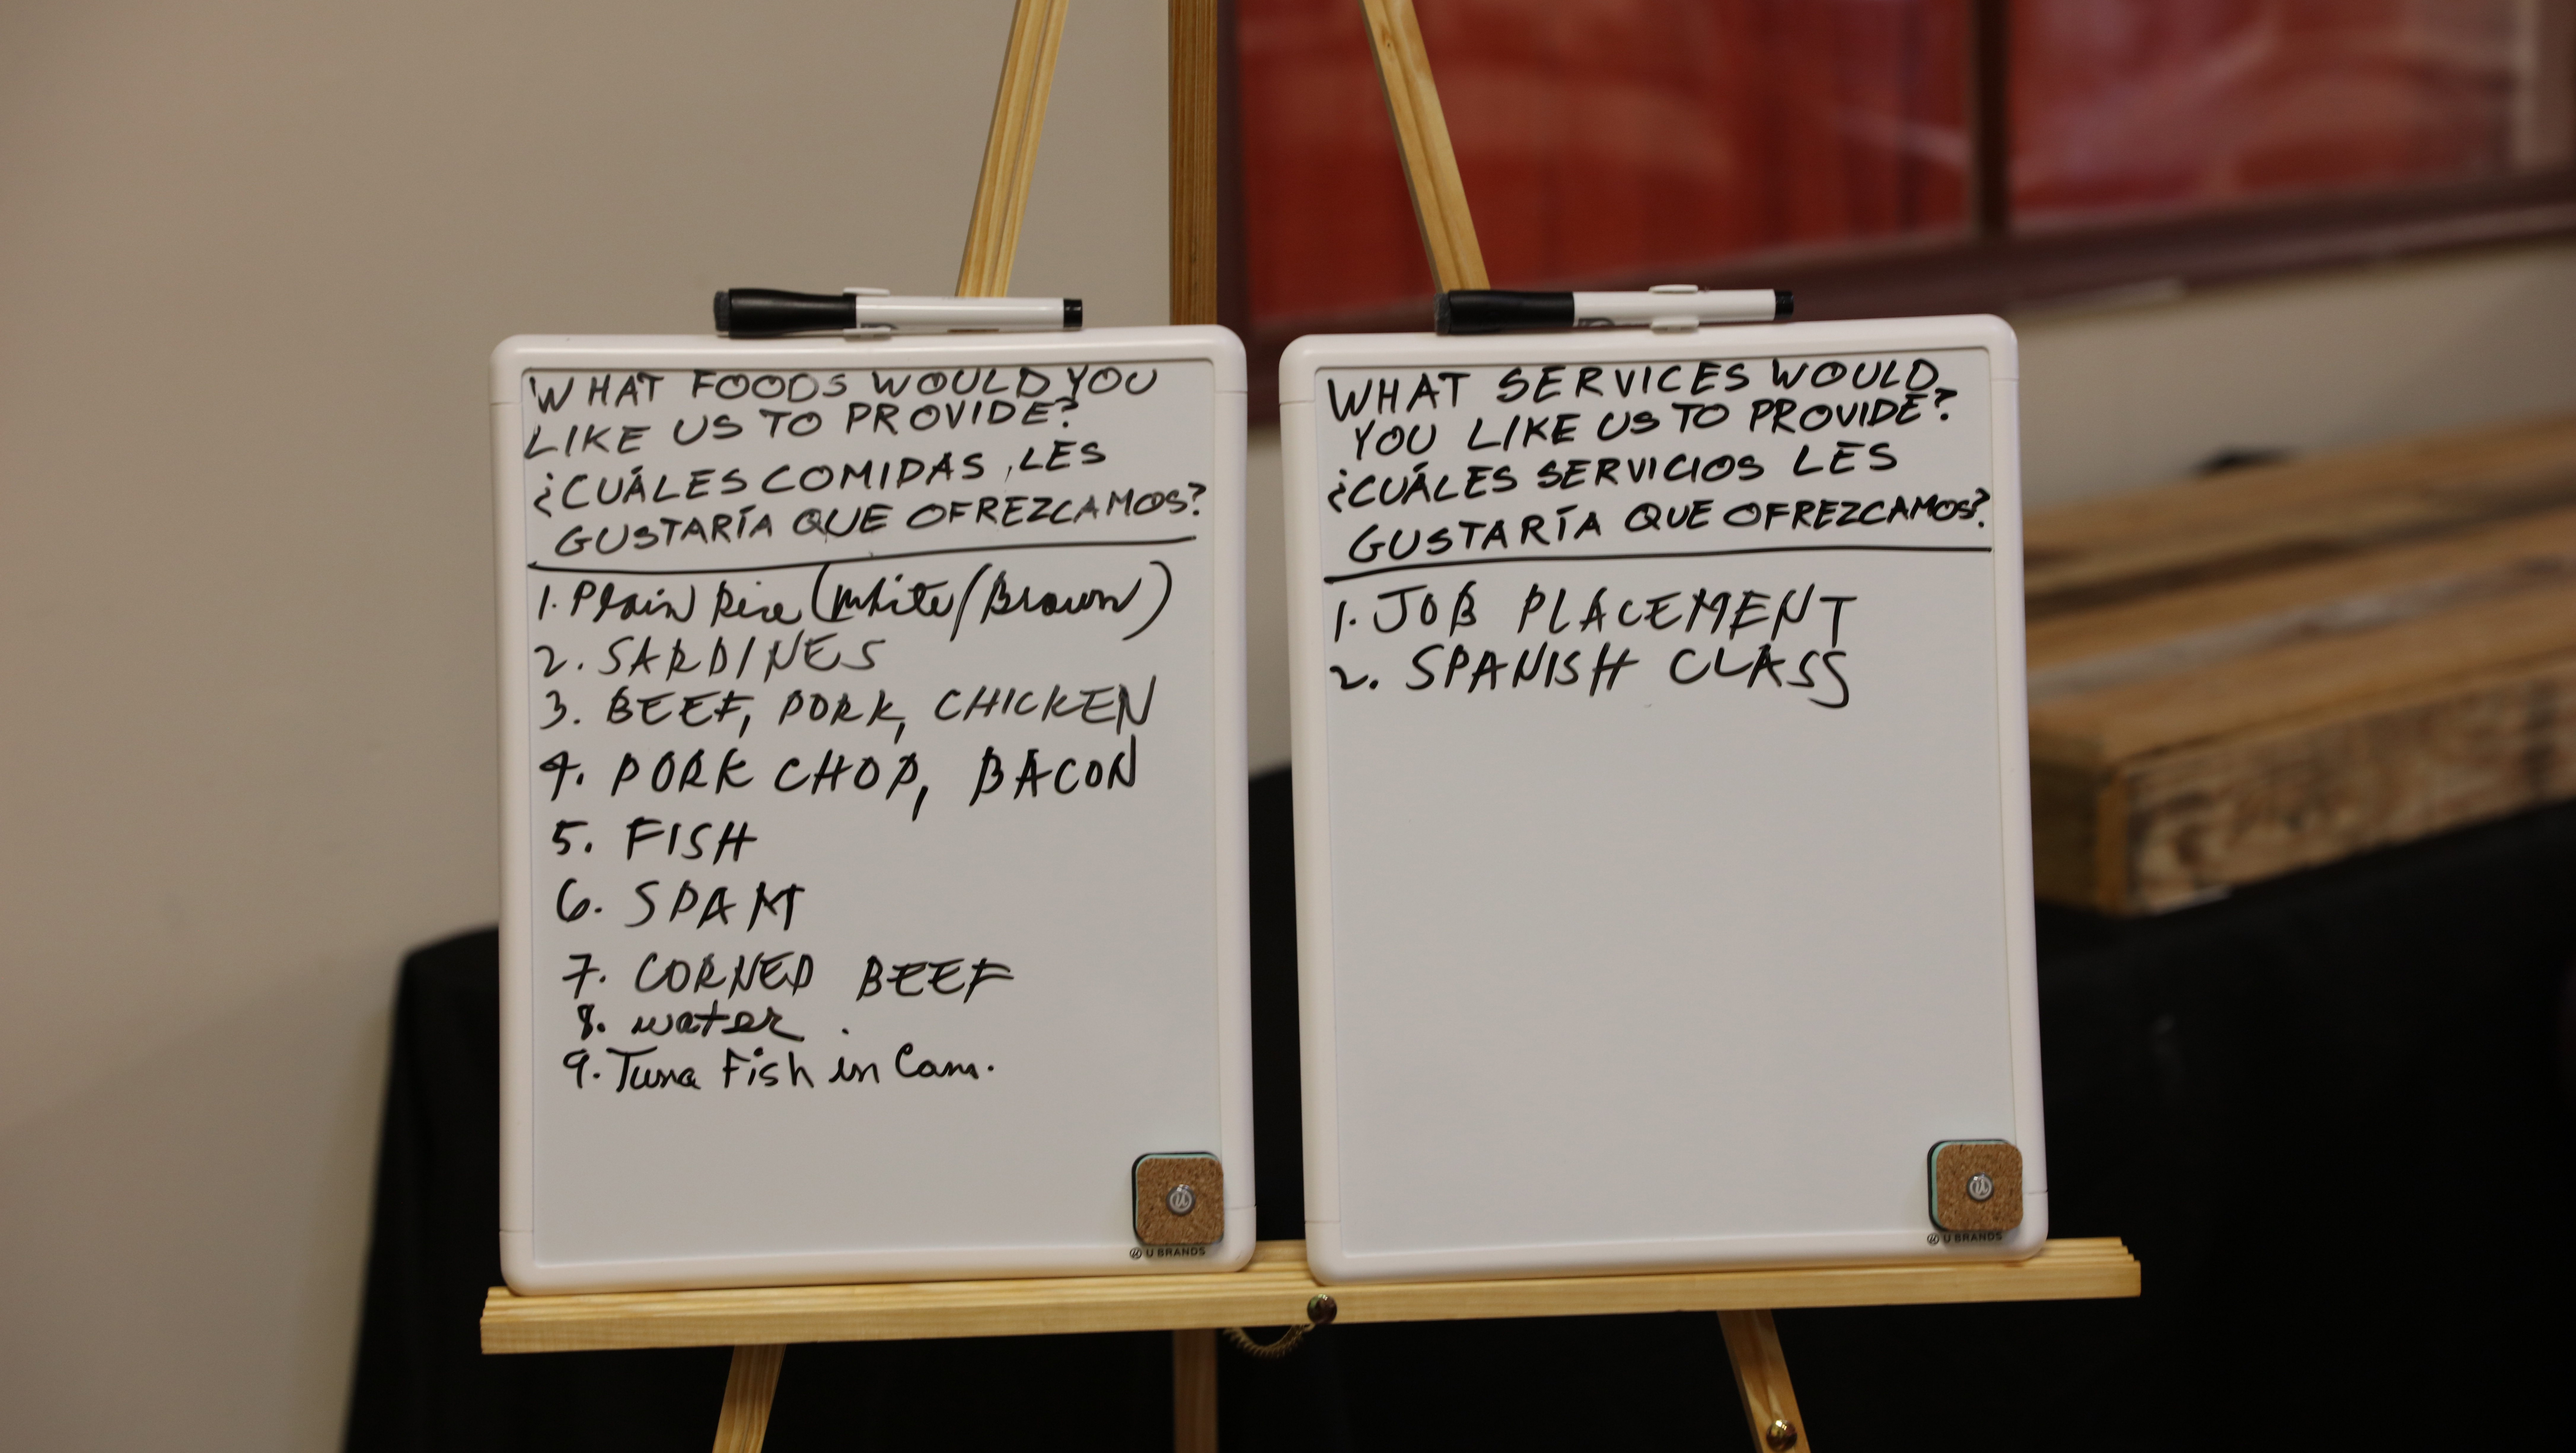 WHAT FOODS WOULD YOU
LIKE US TO PROVIDE?
¿CUÁLES COMIDAS LES
GUSTARÍA QUE OFREZCAMOS?
1. Plain Rice (White/Brown)
2. SARDINES
3. BEEF, PORK, CHICKEN
4. PORK CHOP, BACON
5. FISH
6. SPAM
7. CORNED BEEF
8. water.
9. Tuna Fish in Can.
U BRANDS
WHAT SERVICES WOULD
YOU LIKE US TO PROVIDE?
¿CUÁLES SERVICIOS LES
GUSTARÍA QUE OFREZCAMOS?
1. JOB PLACEMENT
2. SPANISH CLASS
U BRANDS